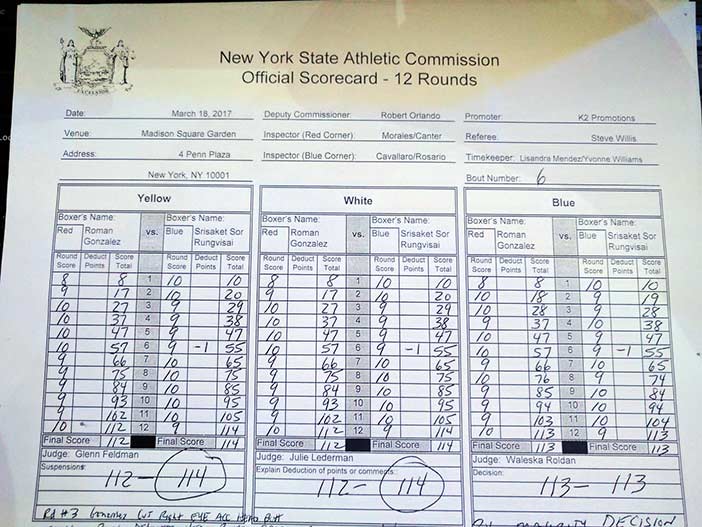 EXCELSIOR
New York State Athletic Commission
Official Scorecard - 12 Rounds
Date: March 18, 2017 Deputy Commissioner: Robert Orlando Promoter: K2 Promotions
Venue: Madison Square Garden Inspector (Red Corner): Morales/Canter Referee: Steve Willis
Address: 4 Penn Plaza Inspector (Blue Corner): Cavallaro/Rosario Timekeeper: Lisandra Mendez/Yvonne Williams
New York, NY 10001 Bout Number: 6
Yellow White Blue
Boxer's Name: vs. Boxer's Name: Boxer's Name: vs. Boxer's Name: Boxer's Name: vs. Boxer's Name:
Red Roman Gonzalez Blue Srisaket Sor Rungvisai Red Roman Gonzalez Blue Srisaket Sor Rungvisai Red Roman Gonzalez Blue Srisaket Sor Rungvisai
Round Score Deduct Points Score Total Round Score Deduct Points Score Total Round Score Deduct Points Score Total Round Score Deduct Points Score Total Round Score Deduct Points Score Total Round Score Deduct Points Score Total
8 8 1 10 10 8 8 1 10 10 8 8 1 10 10
9 17 2 10 20 9 17 2 10 20 10 18 2 9 19
10 27 3 9 29 10 27 3 9 29 10 28 3 9 28
10 37 4 9 38 10 37 4 9 38 9 37 4 10 38
10 47 5 9 47 10 47 5 9 47 10 47 5 9 47
10 57 6 9 -1 55 10 57 6 9 -1 55 10 57 6 9 -1 55
9 66 7 10 65 9 66 7 10 65 9 66 7 10 65
9 75 8 10 75 9 75 8 10 75 10 76 8 9 74
9 84 9 10 85 9 84 9 10 85 9 85 9 10 84
9 93 10 10 95 9 93 10 10 95 9 94 10 10 94
9 102 11 10 105 9 102 11 10 105 9 103 11 10 104
10 112 12 9 114 10 112 12 9 114 10 113 12 9 113
Final Score 112 Final Score 114 Final Score 112 Final Score 114 Final Score 113 Final Score 113
Judge: Glenn Feldman Judge: Julie Lederman Judge: Waleska Roldan
Suspensions: Explain Deduction of points or comments: Decision:
112 - 114 112 - 114 113 - 113
Rd #3 Gonzalez Cut Right Eye Acc Head Butt
MAJORITY DECISION